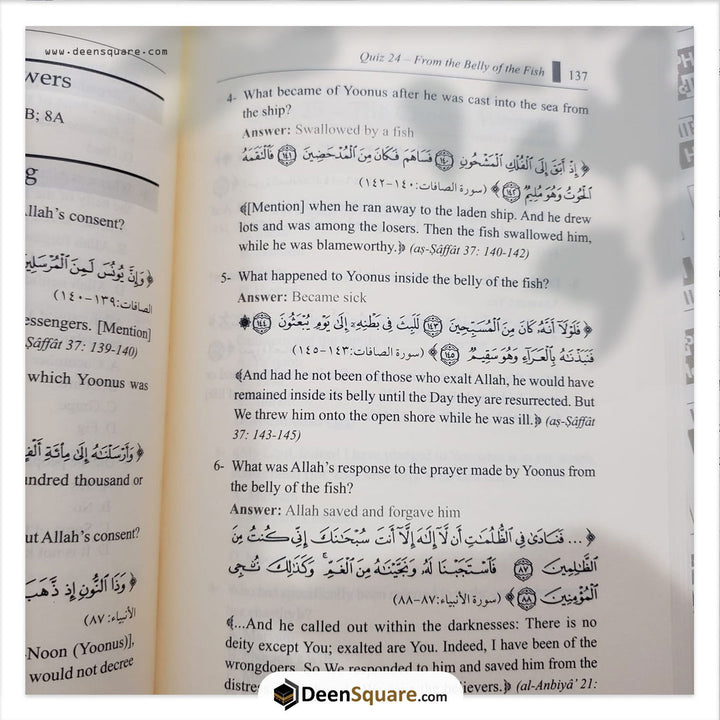 www.deensquare.com
wers
B; 8A
g
Allah's consent?
﴿ وَإِنَّ يُونُسَ لَمِنَ الْمُرْسَلِينَ
الصافات: ١٣٩-١٤٠)
essengers. [Mention]
Ṣâffât 37: 139-140)
which Yoonus was
﴿ وَأَرْسَلْنَاهُ إِلَىٰ مِائَةِ أَلْفٍ
undred thousand or
ut Allah's consent?
﴿ وَذَا النُّونِ إِذ ذَّهَبَ
الأنبياء: ٨٧)
-Noon (Yoonus)],
would not decree
Quiz 24 – From the Belly of the Fish 137
4- What became of Yoonus after he was cast into the sea from
the ship?
Answer: Swallowed by a fish
﴿ إِذْ أَبَقَ إِلَى الْفُلْكِ الْمَشْحُونِ ١٤٠ فَسَاهَمَ فَكَانَ مِنَ الْمُدْحَضِينَ ١٤١ فَالْتَقَمَهُ
الْحُوتُ وَهُوَ مُلِيمٌ ١٤٢ ﴾ (سورة الصافات: ١٤٠-١٤٢)
﴿[Mention] when he ran away to the laden ship. And he drew
lots and was among the losers. Then the fish swallowed him,
while he was blameworthy.﴾ (aṣ-Ṣâffât 37: 140-142)
5- What happened to Yoonus inside the belly of the fish?
Answer: Became sick
﴿ فَلَوْلَا أَنَّهُ كَانَ مِنَ الْمُسَبِّحِينَ ١٤٣ لَلَبِثَ فِي بَطْنِهِ إِلَىٰ يَوْمِ يُبْعَثُونَ ١٤٤
فَنَبَذْنَاهُ بِالْعَرَاءِ وَهُوَ سَقِيمٌ ١٤٥ ﴾ (سورة الصافات: ١٤٣-١٤٥)
﴿And had he not been of those who exalt Allah, he would have
remained inside its belly until the Day they are resurrected. But
We threw him onto the open shore while he was ill.﴾ (aṣ-Ṣâffât
37: 143-145)
6- What was Allah's response to the prayer made by Yoonus from
the belly of the fish?
Answer: Allah saved and forgave him
﴿ ... فَنَادَىٰ فِي الظُّلُمَاتِ أَن لَّا إِلَٰهَ إِلَّا أَنتَ سُبْحَانَكَ إِنِّي كُنتُ مِنَ
الظَّالِمِينَ ٨٧ فَاسْتَجَبْنَا لَهُ وَنَجَّيْنَاهُ مِنَ الْغَمِّ ۚ وَكَذَٰلِكَ نُنجِي
الْمُؤْمِنِينَ ٨٨ ﴾ (سورة الأنبياء: ٨٧-٨٨)
﴿...And he called out within the darknesses: There is no
deity except You; exalted are You. Indeed, I have been of the
wrongdoers. So We responded to him and saved him from the
distre believers.﴾ (al-Anbiyâ' 21:
DeenSquare.com